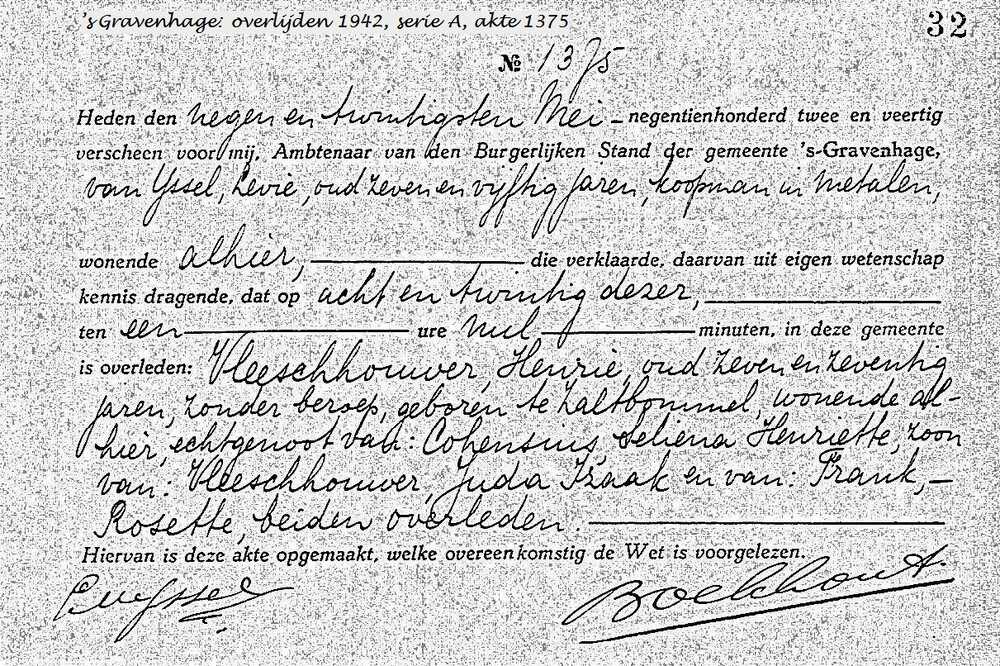 's Gravenhage: overlijden 1942, serie A, akte 1375
32
№ 1375
Heden den negen en twintigsten Mei – negentienhonderd twee en veertig
verscheen voor mij, Ambtenaar van den Burgerlijken Stand der gemeente 's-Gravenhage,
van Yssel, Levie, oud zeven en vijftig jaren, koopman in metalen,
wonende alhier, die verklaarde, daarvan uit eigen wetenschap
kennis dragende, dat op acht en twintig dezer,
ten een ure nul minuten, in deze gemeente
is overleden: Vleeschhouwer, Henrie, oud zeven en zeventig
jaren, zonder beroep, geboren te Zaltbommel, wonende al-
hier, echtgenoot van: Cohensius, Seliena Henriette, zoon
van: Vleeschhouwer, Juda Izaak en van: Frank, –
Rosette, beiden overleden.
Hiervan is deze akte opgemaakt, welke overeenkomstig de Wet is voorgelezen.
Boekhout.